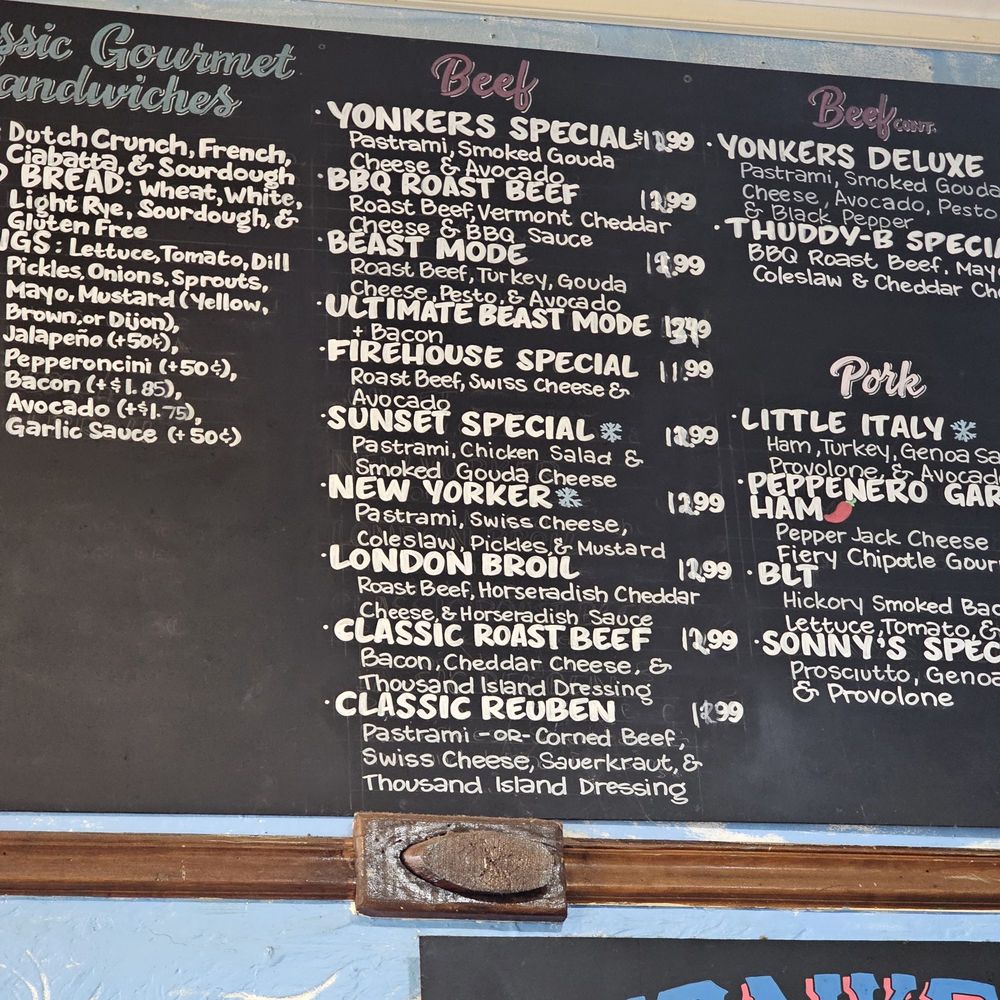 ssic Gourmet
andwiches
Dutch Crunch, French,
Ciabatta, & Sourdough
BREAD: Wheat, White,
Light Rye, Sourdough, &
Gluten Free
GS: Lettuce, Tomato, Dill
Pickles, Onions, Sprouts,
Mayo, Mustard (Yellow,
Brown, or Dijon),
Jalapeño (+50¢),
Pepperoncini (+50¢),
Bacon (+$1.85),
Avocado (+$1.75),
Garlic Sauce (+50¢)
Beef
· YONKERS SPECIAL
Pastrami, Smoked Gouda
Cheese & Avocado
· BBQ ROAST BEEF 12.99
Roast Beef, Vermont Cheddar
Cheese & BBQ Sauce
· BEAST MODE
Roast Beef, Turkey, Gouda
Cheese, Pesto, & Avocado
· ULTIMATE BEAST MODE
+ Bacon
· FIREHOUSE SPECIAL 11.99
Roast Beef, Swiss Cheese &
Avocado
· SUNSET SPECIAL
Pastrami, Chicken Salad &
Smoked Gouda Cheese
· NEW YORKER 12.99
Pastrami, Swiss Cheese,
Coleslaw, Pickles, & Mustard
· LONDON BROIL 12.99
Roast Beef, Horseradish Cheddar
Cheese, & Horseradish Sauce
· CLASSIC ROAST BEEF 12.99
Bacon, Cheddar Cheese, &
Thousand Island Dressing
· CLASSIC REUBEN
Pastrami -OR- Corned Beef,
Swiss Cheese, Sauerkraut, &
Thousand Island Dressing
Beef CONT.
· YONKERS DELUXE
Pastrami, Smoked Gouda
Cheese, Avocado, Pesto
& Black Pepper
· THUDDY-B SPECIA
BBQ Roast Beef, Mayo
Coleslaw & Cheddar Ch
Pork
· LITTLE ITALY
Ham, Turkey, Genoa Sa
Provolone, & Avocad
· PEPPENERO GAR
HAM
Pepper Jack Cheese
Fiery Chipotle Gour
· BLT
Hickory Smoked Bac
Lettuce, Tomato, &
· SONNY'S SPEC
Prosciutto, Genoa
& Provolone